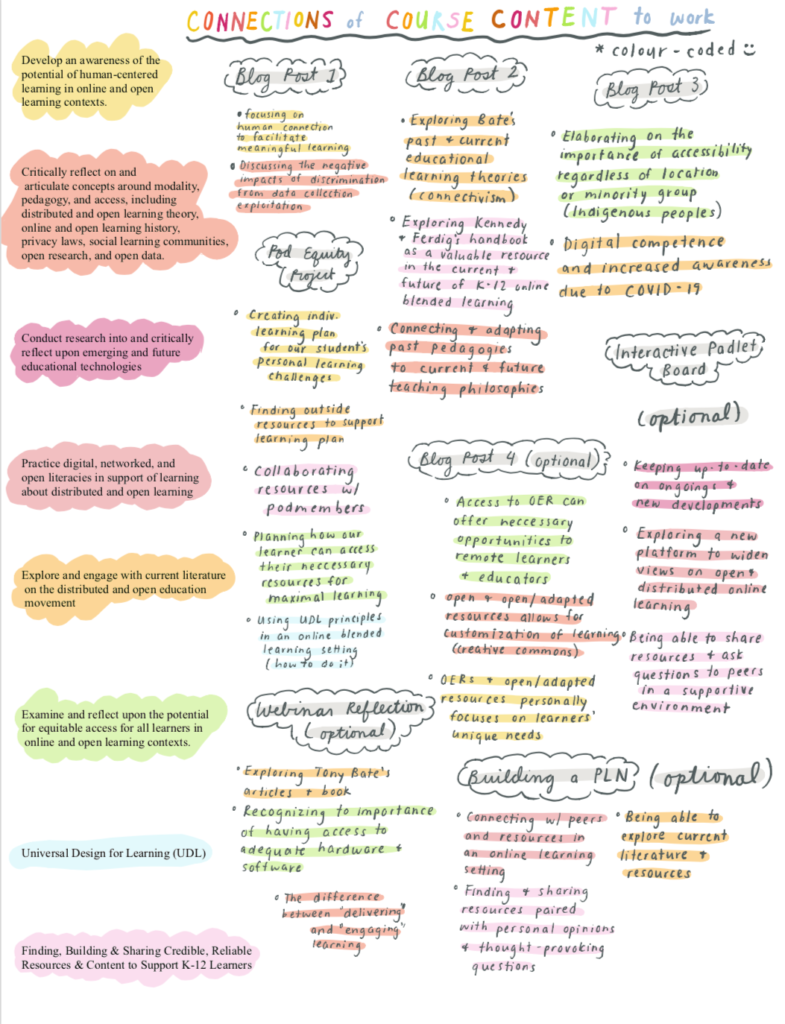 CONNECTIONS of COURSE CONTENT to work
* colour-coded
Develop an awareness of the
potential of human-centered
learning in online and open
learning contexts.
Critically reflect on and
articulate concepts around modality,
pedagogy, and access, including
distributed and open learning theory,
online and open learning history,
privacy laws, social learning communities,
open research, and open data.
Conduct research into and critically
reflect upon emerging and future
educational technologies
Practice digital, networked, and
open literacies in support of learning
about distributed and open learning
Explore and engage with current literature
on the distributed and open education
movement
Examine and reflect upon the potential
for equitable access for all learners in
online and open learning contexts.
Universal Design for Learning (UDL)
Finding, Building & Sharing Credible, Reliable
Resources & Content to Support K-12 Learners
Blog Post 1
• focusing on
human connection
to facilitate
meaningful learning
• Discussing the negative
impacts of discrimination
from data collection
exploitation
Pod Equity
Project
• Creating indiv.
learning plan
for our student's
personal learning
challenges
• Finding outside
resources to support
learning plan
• Collaborating
resources w/
podmembers
• Planning how our
learner can access
their neccessary
resources for
maximal learning
• Using UDL principles
in an online blended
learning setting
(how to do it)
Webinar Reflection
(optional)
• Exploring Tony Bate's
articles + book
• Recognizing to importance
of having access to
adequate hardware +
software
• The difference
between "delivering"
and "engaging"
learning
Blog Post 2
• Exploring Bate's
past + current
educational
learning theories
(connectivism)
• Exploring Kennedy
+ Ferdig's handbook
as a valuable resource
in the current +
future of K-12 online
blended learning
• Connecting + adapting
past pedagogies
to current + future
teaching philosophies
Blog Post 4 (optional)
• Access to OER can
offer neccessary
opportunities to
remote learners
+ educators
• open + open/adapted
resources allows for
customization of learning
(creative commons)
• OERs + open/adapted
resources personally
focuses on learners'
unique needs
Blog Post 3
• Elaborating on the
importance of accessibility
regardless of location
or minority group
(Indigenous peoples)
• Digital competence
and increased awareness
due to COVID-19
Interactive Padlet
Board
(optional)
• Keeping up-to-date
on ongoings +
new developments
• Exploring a new
platform to widen
views on open +
distributed online
learning
• Being able to share
resources + ask
questions to peers
in a supportive
environment
Building a PLN (optional)
• Connecting w/ peers
and resources in
an online learning
setting
• Finding + sharing
resources paired
with personal opinions
+ thought-provoking
questions
• Being able to
explore current
literature +
resources